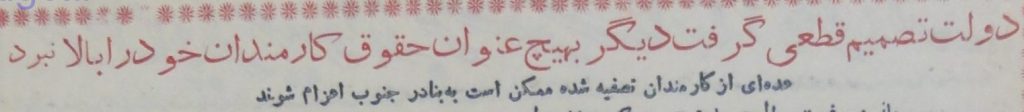 دولت تصمیم قطعی گرفت دیگر بهیچ عنوان حقوق کارمندان خود را بالا نبرد
عده‌ای از کارمندان تصفیه شده ممکن است به بنادر جنوب اعزام شوند